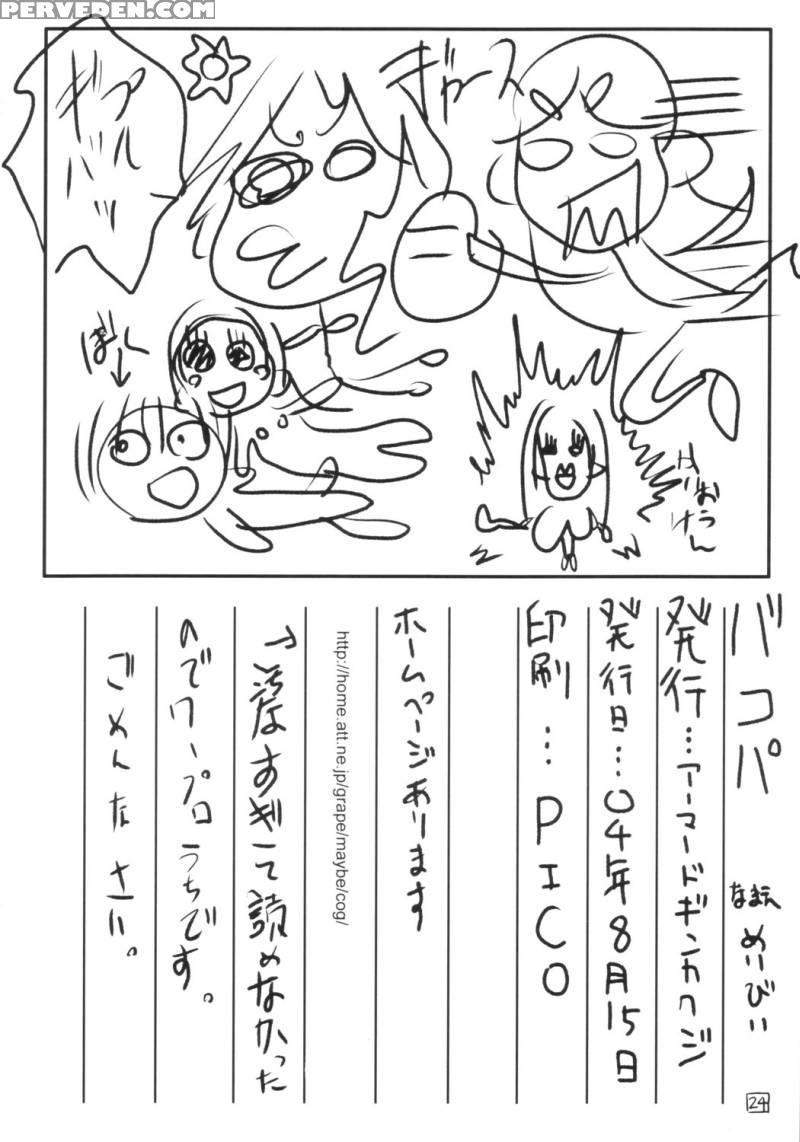 PERVEDEN.COM
ギャース
ギブ
バコパ
なまえ めいびい
発行…アーマードギンカクジ
発行日…04年8月15日
印刷…PICO
ホームページあります
http://home.att.ne.jp/grape/maybe/cog/
すぎて読めなかった
のでワープロうちです。
ごめんなさい。
24